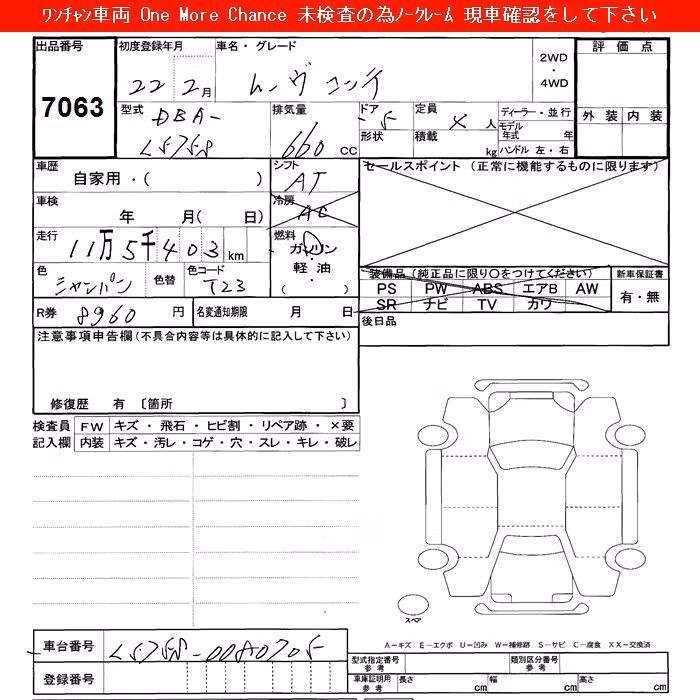 ﾜﾝﾁｬﾝ車両 One More Chance 未検査の為ﾉｰｸﾚｰﾑ 現車確認をして下さい
出品番号 7063
初度登録年月 22 2月
車名・グレード ムーヴ コンテ
2WD ・ 4WD
評価点
外装 内装
型式 DBA-L575S
排気量 660 cc
ドア 5
形状
定員 人
積載 kg
ディーラー・並行
モデル年式 年
ハンドル 左・右
車歴 自家用・( )
シフト AT
セールスポイント (正常に機能するものに限ります)
車検 年 月( 日)
冷房 AC
走行 11万5千403km
燃料 ガソリン・軽油・( )
色 シャンパン
色替
色コード T23
装備品 (純正品に限り○をつけてください)
PS PW ABS エアB AW
SR ナビ TV カワ
新車保証書 有・無
R券 8960 円
名変通知期限 月 日
後日品
注意事項申告欄 (不具合内容等は具体的に記入して下さい)
修復歴 有 〔箇所 〕
検査員記入欄
FW キズ・飛石・ヒビ割・リペア跡・×要
内装 キズ・汚レ・コゲ・穴・スレ・キレ・破レ
スペア
A-キズ E-エクボ U-凹み W-補修跡 S-サビ C-腐食 XX-交換済
車台番号 L575S-0080705
登録番号
型式指定番号 参考
類別区分番号 参考
車庫証明用 参考 長さ cm 幅 cm 高さ cm